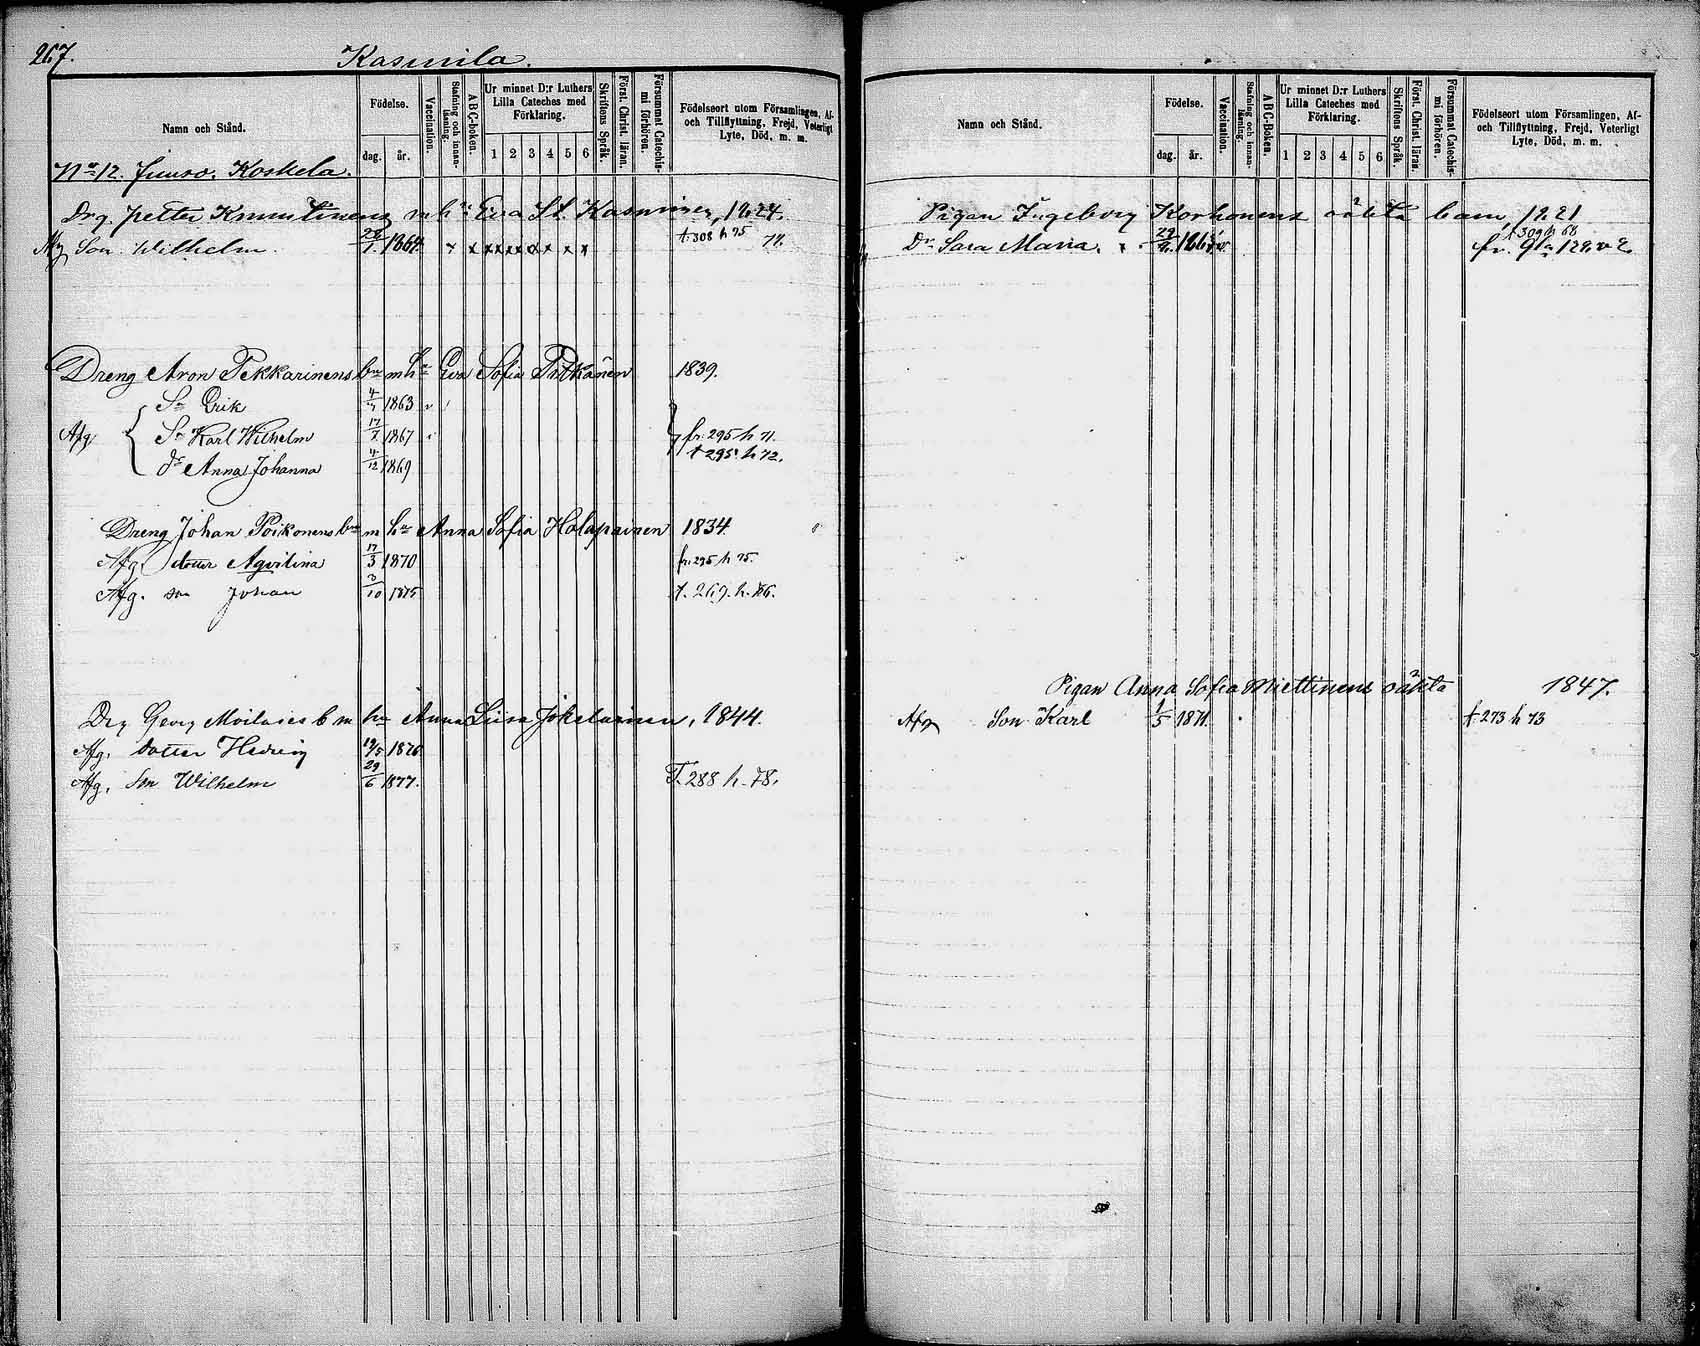 267.
Kasurila.
Namn och Stånd.
Födelse.
dag. år.
Vaccination.
Stafning och innanläsning.
ABC-boken.
Ur minnet D:r Luthers Lilla Cateches med Förklaring.
1 2 3 4 5 6
Skriftens Språk.
Först. Christ. läran.
Försummat Catechismi förhören.
Födelseort utom Församlingen, Af- och Tillflyttning, Frejd, Veterligt Lyte, Död, m. m.
No 12. Juuso. Koskela.
Drg. Petter m h:u Eva St. 1824.
Afg Son Wilhelm. 1864. x x x x x x x x x t. 308 h 75 77.
Dreng Aron Pekkarinens bn m h:u Eva Sofia Pitkänen 1839.
Sn Erik 4/7 1863
Afg. Sn Karl Wilhelm 17/7 1867 fr. 295 h 71.
dr Anna Johanna 4/12 1869 t 295. h 72.
Dreng Johan Poikonens bn m hu Anna Sofia Holopainen 1834.
Afg. dotter Agvilina 17/3 1870 fr. 295 h 75.
Afg. son Johan 3/10 1875 t. 269. h. 76.
Drg Georg Moilases b m hu Anna Lisa Jokelainen, 1844.
Afg. dotter Hedvig 19/5 1870
Afg. Son Wilhelm 29/6 1877. T. 288 h. 78.
Namn och Stånd.
Födelse.
dag. år.
Vaccination.
Stafning och innanläsning.
ABC-Boken.
Ur minnet D:r Luthers Lilla Cateches med Förklaring.
1 2 3 4 5 6
Skriftens Språk.
Först. Christ. läran.
Försummat Catechismi förhören.
Födelseort utom Församlingen, Af- och Tillflyttning, Frejd, Veterligt Lyte, Död, m. m.
Pigan Ingeborg Korhonens oäkta barn 1821
t 309 h 68
Dr Sara Maria.
Pigan Anna Sofia Miettinens oäkta 1847.
Afg Son Karl 1/5 1871. t. 273 h 73